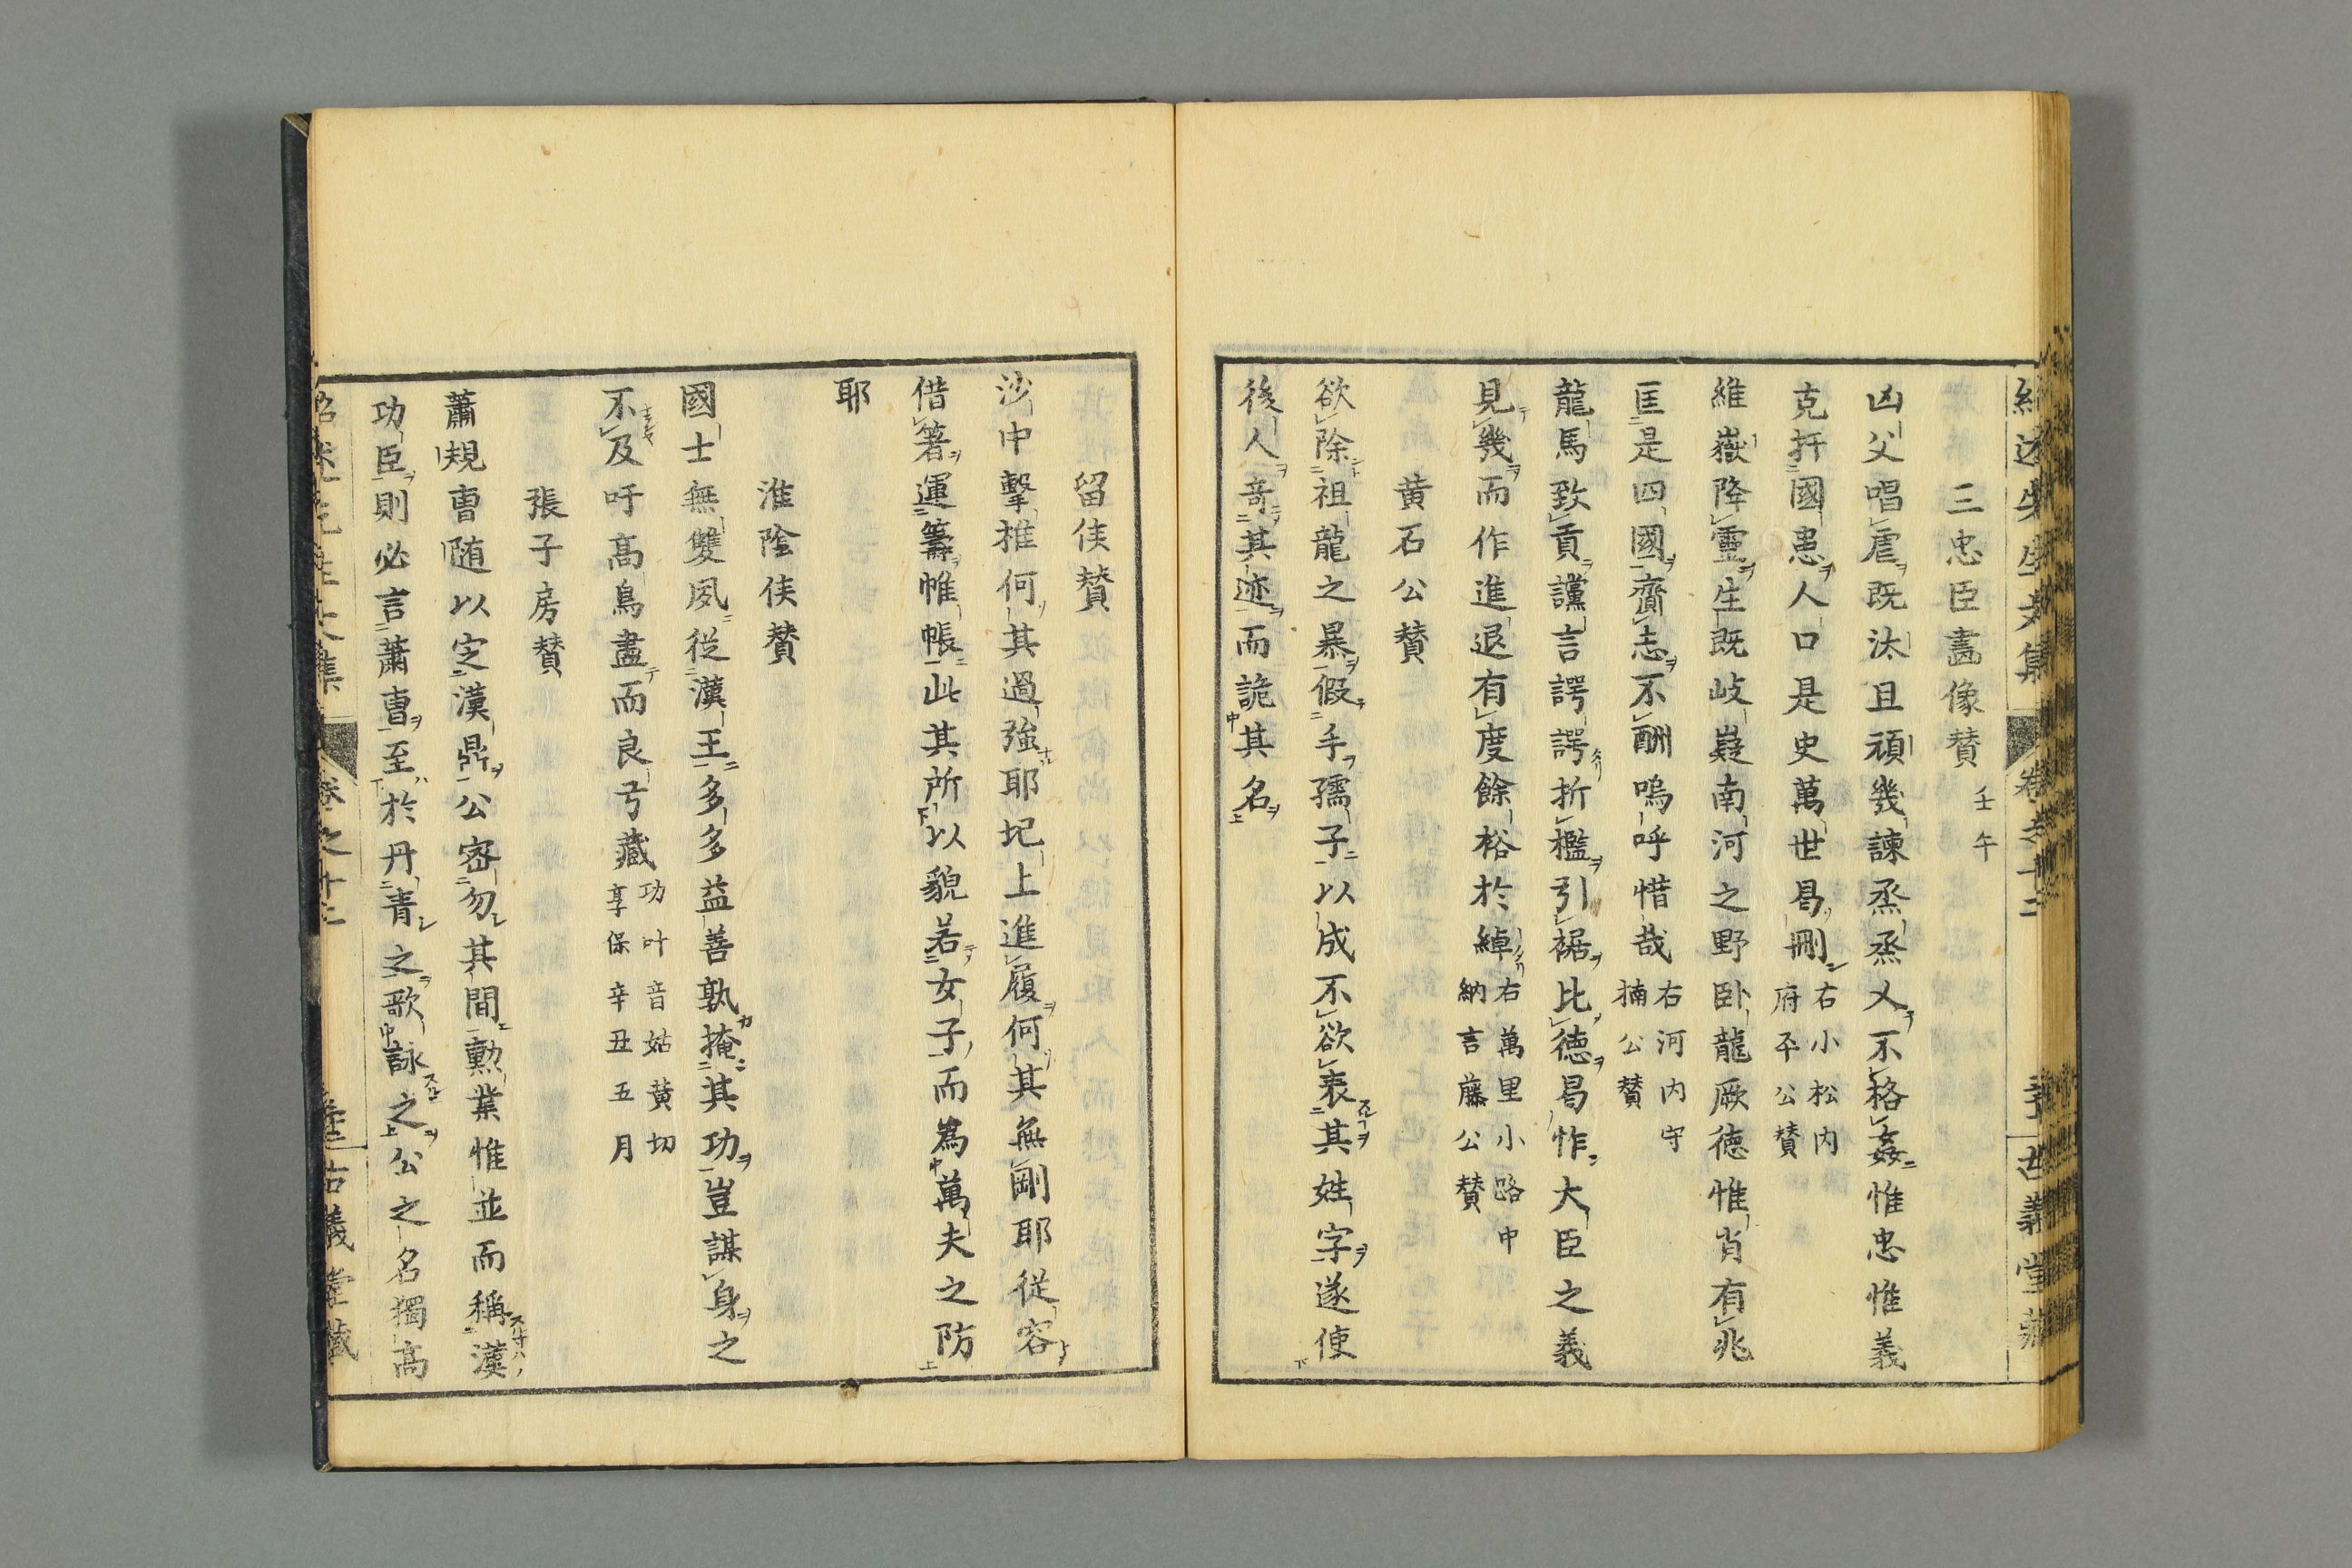 三忠臣畵像贊 壬午
凶父唱虐既汰且頑幾諫烝烝乂不格姦惟忠惟義
克扞國患人口是史萬世曷刪 右小松内府平公贊
維嶽降靈生既岐嶷南河之野卧龍厥徳惟肖有兆
匡是四國齎志不酬嗚呼惜哉 右河内守楠公贊
龍馬致貢讜言諤諤折檻引裾比徳曷怍大臣之義
見幾而作進退有度餘裕於綽 右萬里小路中納言藤公贊
黄石公贊
欲除祖龍之暴假手孺子以成不欲表其姓字遂使
後人竒其迹而詭其名
留侯贊
沙中擊椎何其過強耶圯上進履何其無剛耶従容
借箸運籌帷帳此其所以貌若女子而為萬夫之防
耶
淮陰侯贊
國士無雙夙従漢王多多益善孰掩其功豈謀身之
不及吁高鳥盡而良弓藏 功叶音姑黄切 享保辛丑五月
張子房贊
蕭規曹随以定漢鼎公密勿其間勲業惟並而稱漢
功臣則必言蕭曹至於丹青之歌詠之公之名獨高
卷之十二
古義堂藏